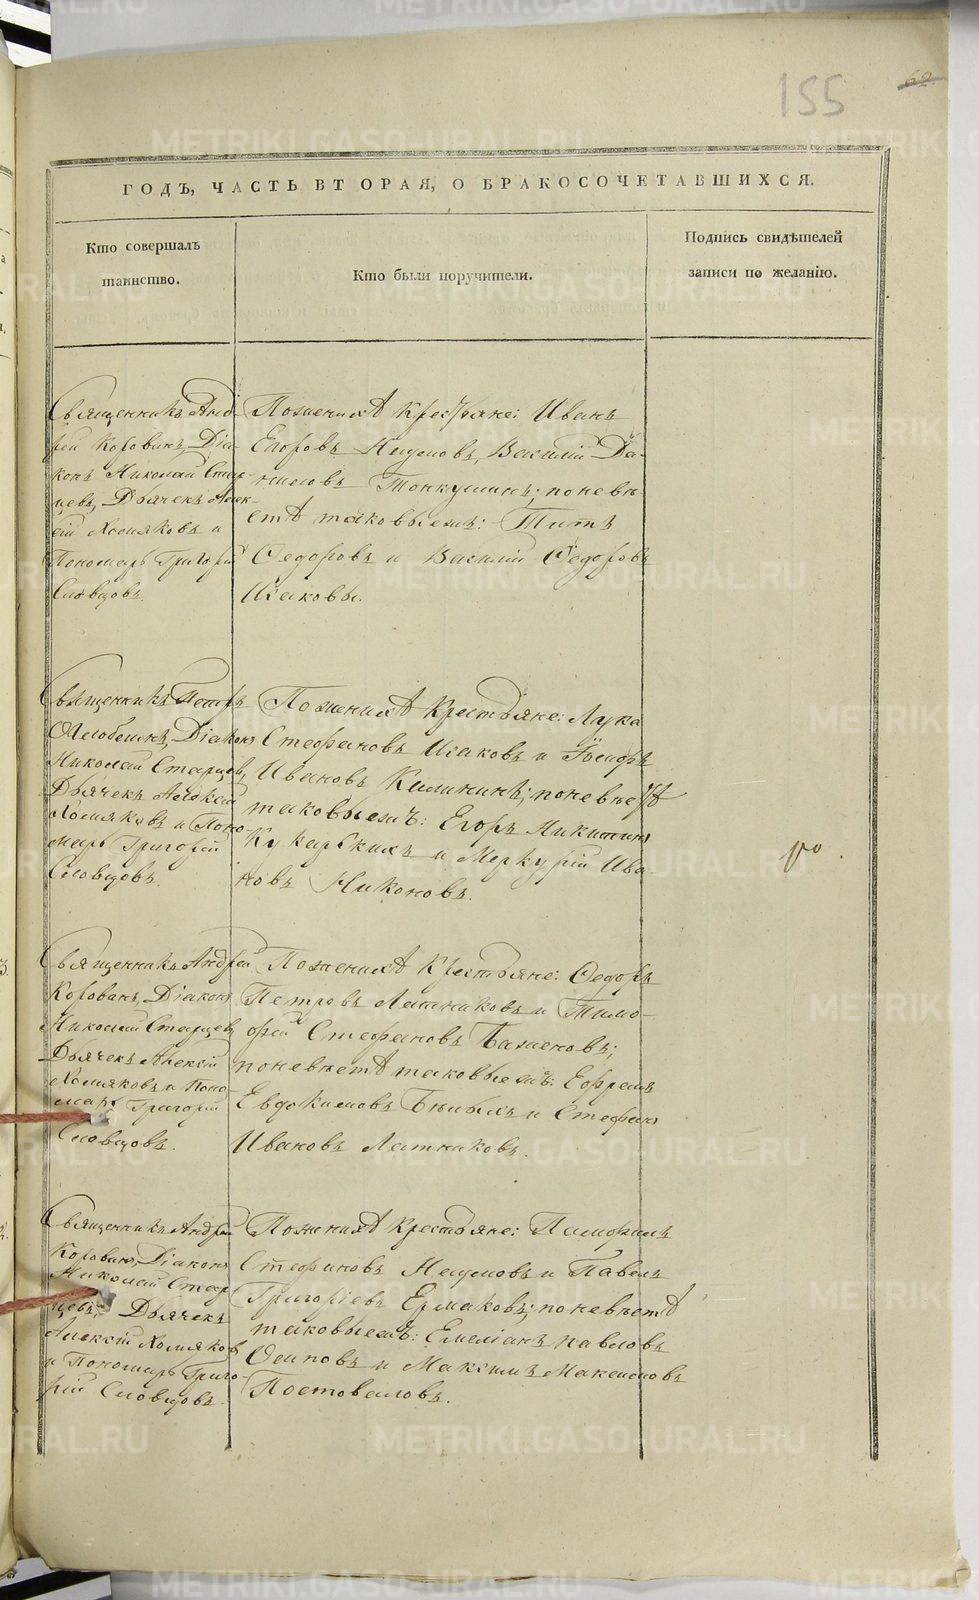 155
62
ГОДЪ, ЧАСТЬ ВТОРАЯ, О БРАКОСОЧЕТАВШИХСЯ.
Кто совершалъ
таинство.
Кто были поручители.
Подпись свидѣтелей
записи по желанію.
Священникъ Анд-
рей Коровинъ, Діа-
конъ Николай Стар-
цевъ, Дьячекъ Алек-
сій Хомяковъ и
Пономарь Григорій
Словцовъ.
По женихѣ крестьяне: Иванъ
Егоровъ Наумовъ, Василій Да-
ниловъ Тонкушинъ; по невѣ-
стѣ таковыежъ: Титъ
Ѳедоровъ и Василій Ѳедоровъ
Исаковы.
Священникъ Петръ
Діаконъ
Николай Старцев,
Дьячекъ Алексій
Хомяковъ и Поно-
марь Григорій
Словцовъ.
По женихѣ Крестьяне: Лука
Стефановъ Исаковъ и Іосифъ
Ивановъ Калининъ; по невѣстѣ
таковыежъ: Егоръ Никитинъ
Кукарскихъ и Меркурій Ива-
новъ Никоновъ.
Священникъ Андрей
Коровинъ, Діаконъ
Николай Старцев,
Дьячекъ Алексій
Хомяковъ и Поно-
марь Григорій
Словцовъ.
По женихѣ Крестьяне: Ѳедоръ
Петровъ Латниковъ и Тимо-
фій Стефановъ Баженовъ;
по невѣстѣ таковыежъ: Ефремъ
Евдокимовъ Бѣлыхъ и Стефанъ
Ивановъ Латниковъ.
Священникъ Андрей
Коровинъ, Діаконъ
Николай Стар-
цевъ, Дьячекъ
Алексій Хомяковъ
и Пономарь Григо-
рій Словцовъ.
По женихѣ Крестьяне: Памфилъ
Стефановъ Наумовъ и Павелъ
Григоріевъ Ермаковъ; по невѣстѣ
таковыежъ: Емеліанъ Павловъ
Осиповъ и Максимъ Максимовъ
Постоваловъ.
METRIKI.GASO-URAL.RU